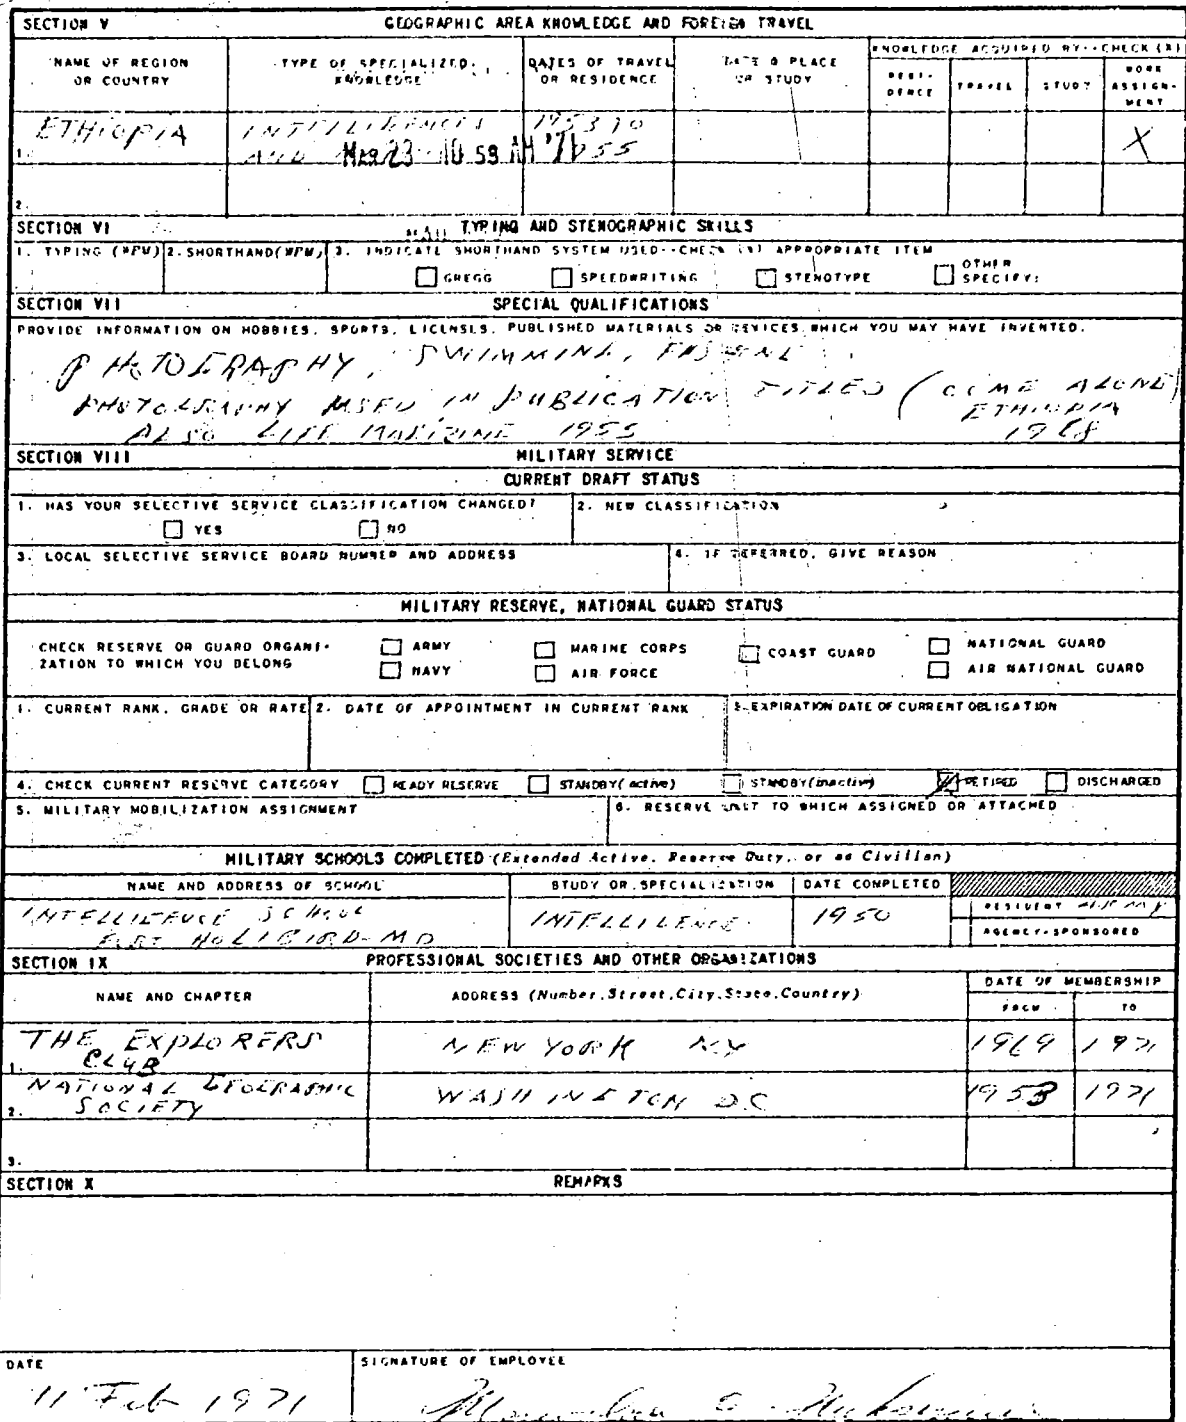 SECTION V GEOGRAPHIC AREA KNOWLEDGE AND FOREIGN TRAVEL
NAME OF REGION OR COUNTRY
TYPE OF SPECIALIZED KNOWLEDGE
DATES OF TRAVEL OR RESIDENCE
DATE & PLACE OF STUDY
KNOWLEDGE ACQUIRED BY--CHECK (X)
RESI-DENCE TRAVEL STUDY WORK ASSIGN-MENT
1. ETHIOPIA INTELLIGENCE 1953 TO X
AND MAR 23 10 59 AM '71 1955
2.
SECTION VI TYPING AND STENOGRAPHIC SKILLS
1. TYPING (WPM) 2. SHORTHAND (WPM) 3. INDICATE SHORTHAND SYSTEM USED--CHECK (X) APPROPRIATE ITEM
GREGG SPEEDWRITING STENOTYPE OTHER SPECIFY:
SECTION VII SPECIAL QUALIFICATIONS
PROVIDE INFORMATION ON HOBBIES, SPORTS, LICENSES, PUBLISHED MATERIALS OR DEVICES WHICH YOU MAY HAVE INVENTED.
PHOTOGRAPHY, SWIMMING,
PHOTOGRAPHY USED IN PUBLICATION TITLED (COME ALONG
ETHIOPIA
ALSO LIFE MAGIZINE 1955 1968
SECTION VIII MILITARY SERVICE
CURRENT DRAFT STATUS
1. HAS YOUR SELECTIVE SERVICE CLASSIFICATION CHANGED? 2. NEW CLASSIFICATION
YES NO
3. LOCAL SELECTIVE SERVICE BOARD NUMBER AND ADDRESS 4. IF DEFERRED, GIVE REASON
MILITARY RESERVE, NATIONAL GUARD STATUS
CHECK RESERVE OR GUARD ORGANI- ARMY MARINE CORPS COAST GUARD NATIONAL GUARD
ZATION TO WHICH YOU BELONG NAVY AIR FORCE AIR NATIONAL GUARD
1. CURRENT RANK, GRADE OR RATE 2. DATE OF APPOINTMENT IN CURRENT RANK 3. EXPIRATION DATE OF CURRENT OBLIGATION
4. CHECK CURRENT RESERVE CATEGORY READY RESERVE STANDBY (active) STANDBY (inactive) RETIRED DISCHARGED
5. MILITARY MOBILIZATION ASSIGNMENT 6. RESERVE UNIT TO WHICH ASSIGNED OR ATTACHED
MILITARY SCHOOLS COMPLETED (Extended Active, Reserve Duty, or as Civilian)
NAME AND ADDRESS OF SCHOOL STUDY OR SPECIALIZATION DATE COMPLETED
INTELLIGENCE SCHOOL INTELLIGENCE 1950 RESIDENT
FORT HOLIBIRD-MD AGENCY-SPONSORED
SECTION IX PROFESSIONAL SOCIETIES AND OTHER ORGANIZATIONS
NAME AND CHAPTER ADDRESS (Number, Street, City, State, Country) DATE OF MEMBERSHIP
FROM TO
THE EXPLORERS NEW YORK NY 1969 1971
1. CLUB
NATIONAL GEOGRAPHIC WASHINGTON D.C 1953 1971
2. SOCIETY
3.
SECTION X REMARKS
DATE SIGNATURE OF EMPLOYEE
11 Feb 1971